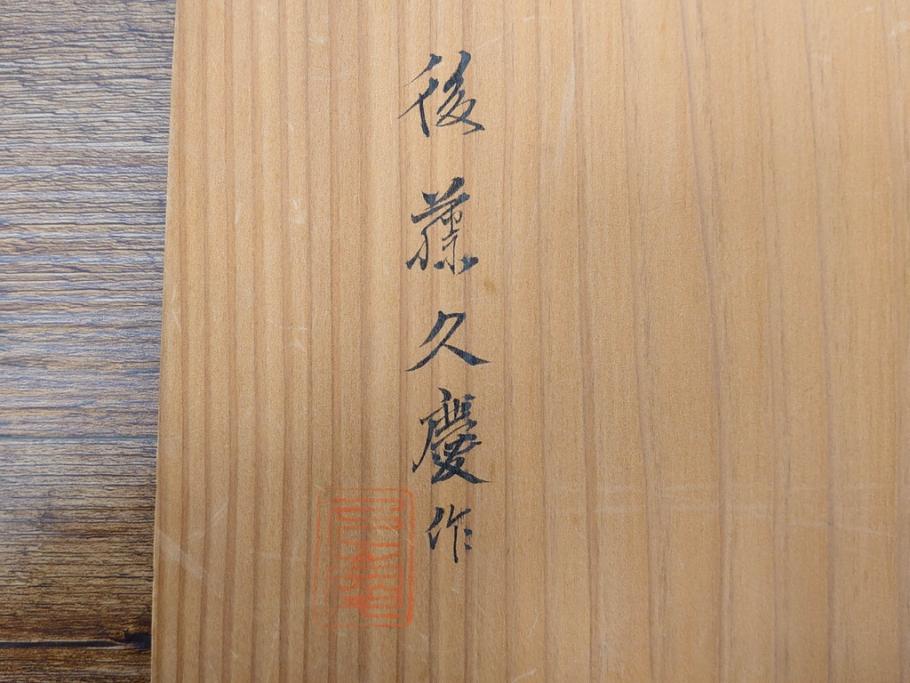 後藤久慶作